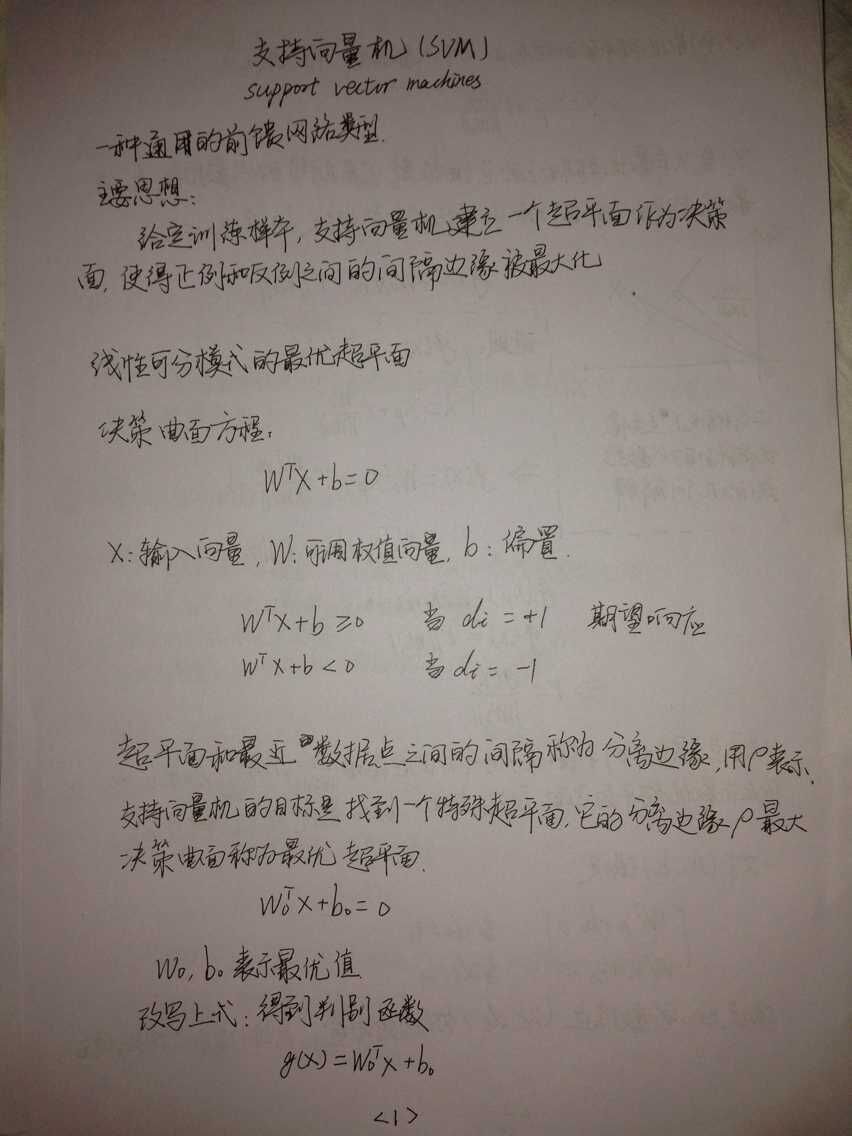 支持向量机(SVM)
support vector machines
一种通用的前馈网络类型.
主要思想:
给定训练样本,支持向量机建立一个超平面作为决策
面,使得正例和反例之间的间隔边缘被最大化
线性可分模式的最优超平面
决策曲面方程:
WᵀX+b=0
X:输入向量,W:可调权值向量,b:偏置.
WᵀX+b≥0 当 di=+1 期望响应
WᵀX+b<0 当 di=-1
超平面和最近数据点之间的间隔称为分离边缘,用ρ表示.
支持向量机的目标是找到一个特殊超平面,它的分离边缘ρ最大
决策曲面称为最优超平面.
W₀ᵀX+b₀=0
W₀,b₀表示最优值.
改写上式:得到判别函数
g(x)=W₀ᵀX+b₀
<1>